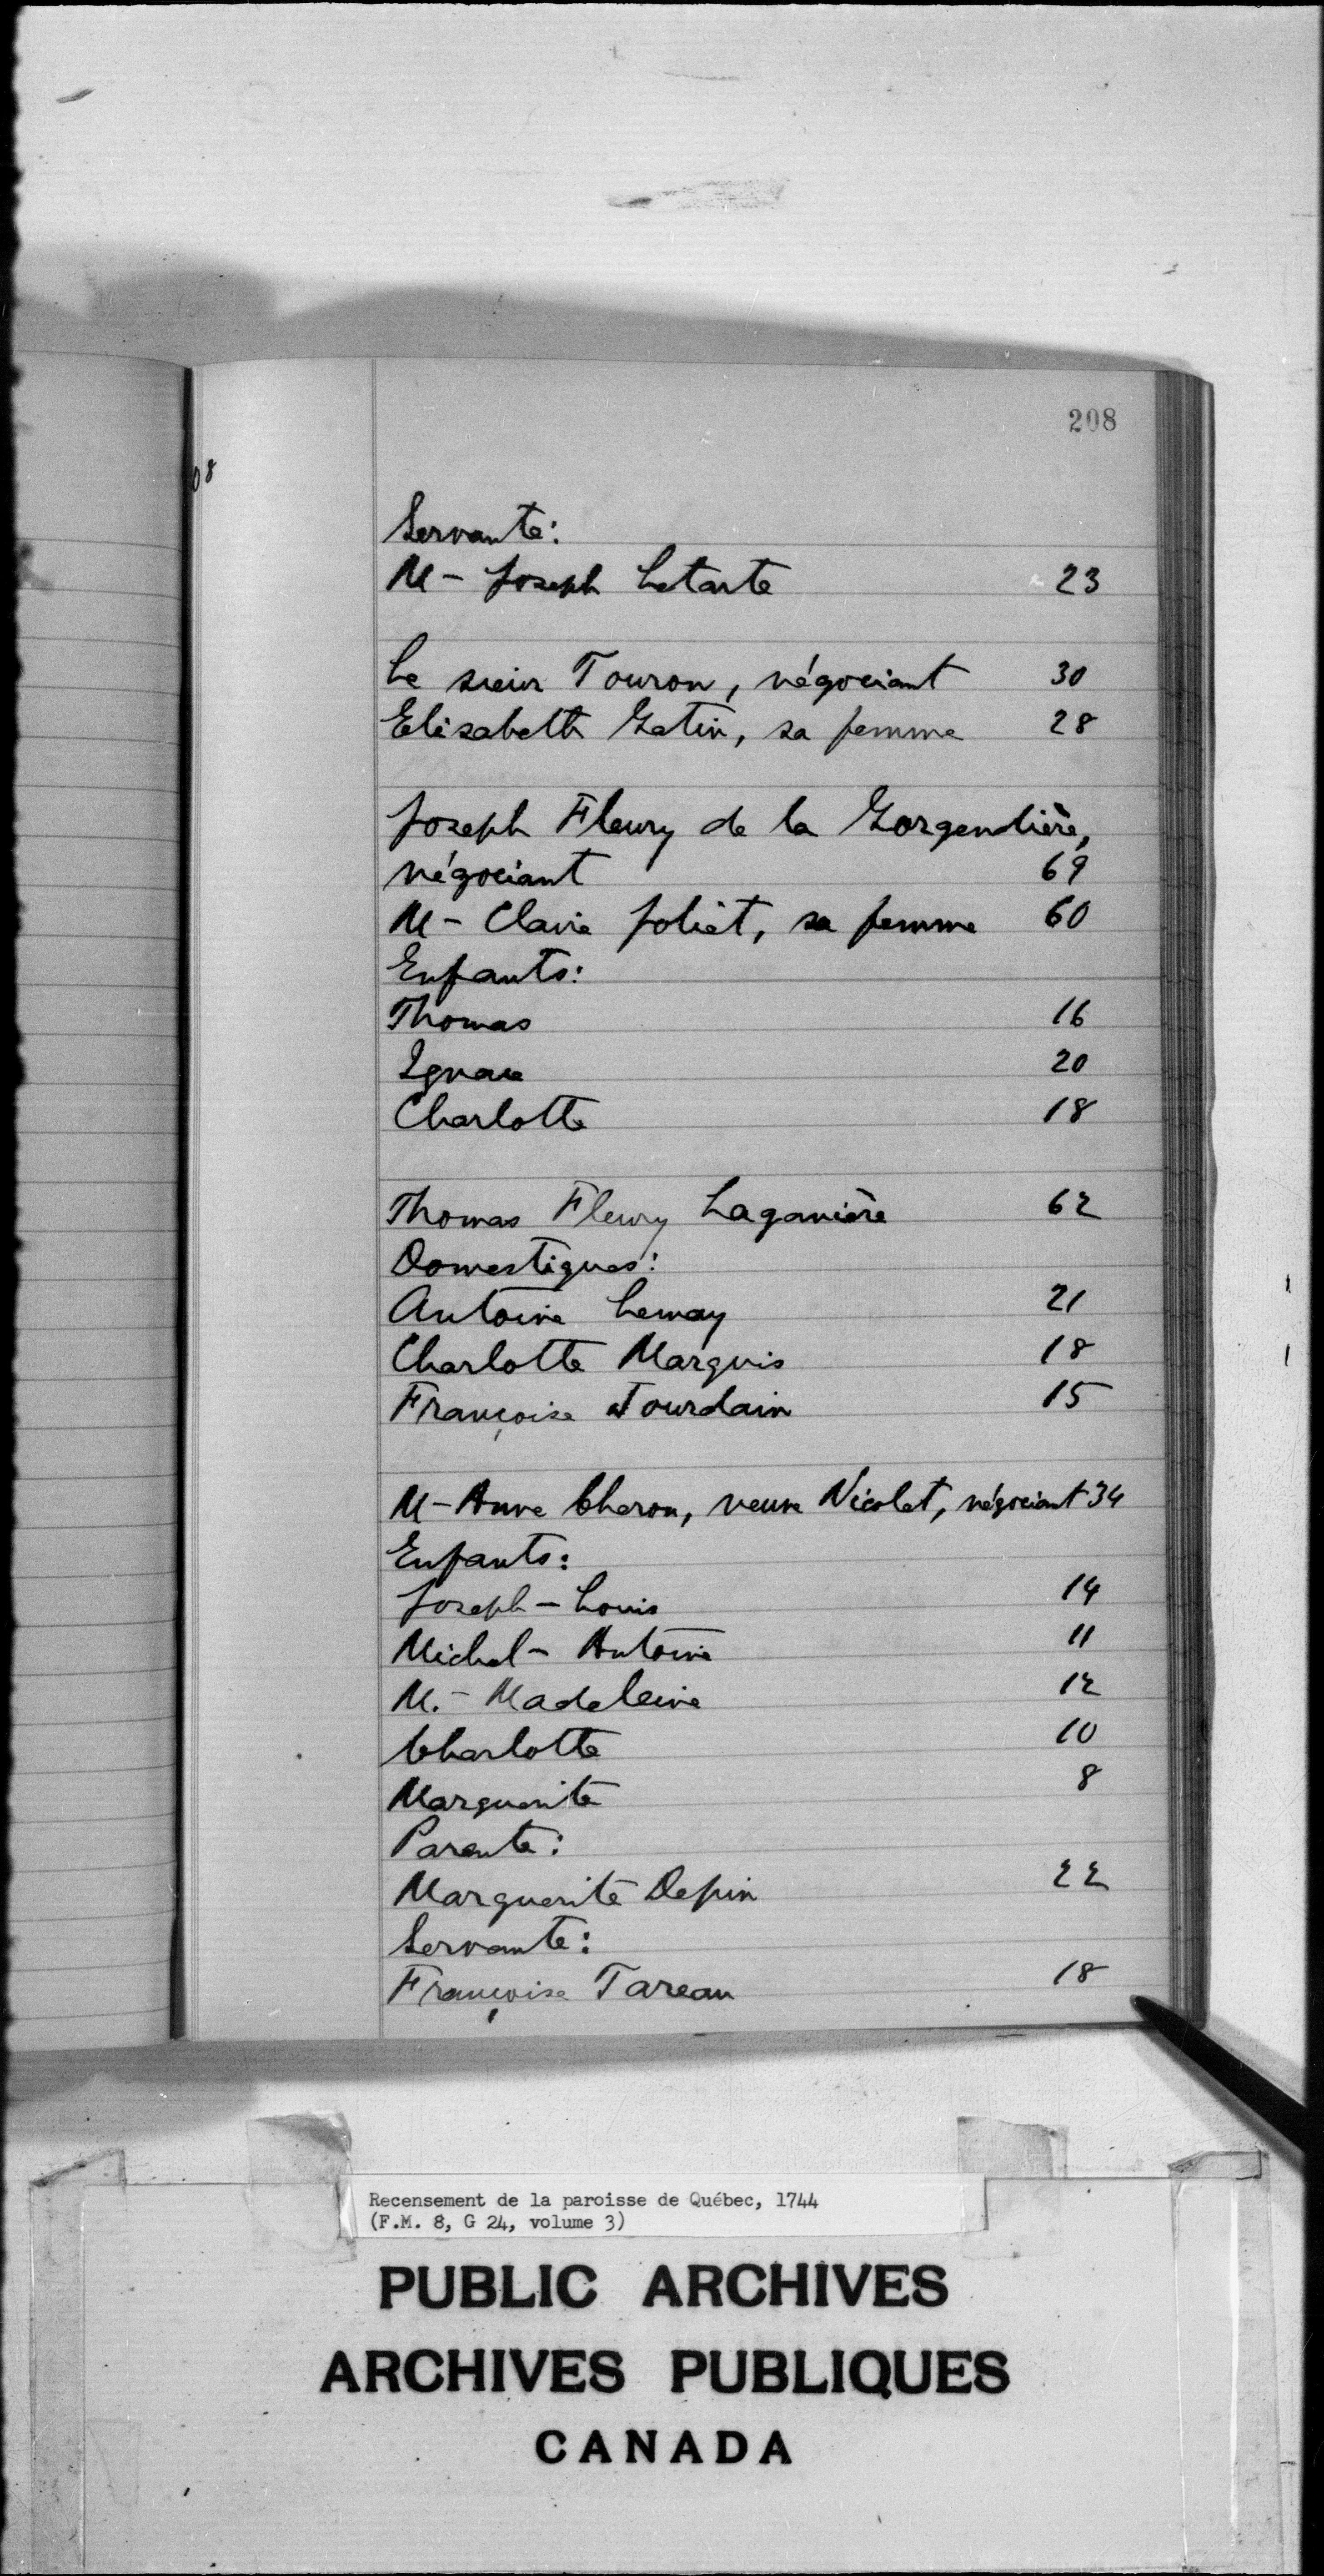 208
08
Servante:
M- Joseph Letarte 23
Le sieur Touron, négociant 30
Elisabeth Gatin, sa femme 28
Joseph Fleury de la Gorgendière,
négociant 69
M- Claire Joliet, sa femme 60
Enfants:
Thomas 16
Ignace 20
Charlotte 18
Thomas Fleury Laganière 62
Domestiques:
Antoine Lemay 21
Charlotte Marquis 18
Françoise Jourdain 15
M- Anne Cheron, veuve Nicolet, négociant 34
Enfants:
Joseph-Louis 14
Michel- Antoine 11
M.- Madeleine 12
Charlotte 10
Marguerite 8
Parente:
Marguerite Depin 22
Servante:
Françoise Tareau 18
Recensement de la paroisse de Québec, 1744
(F.M. 8, G 24, volume 3)
PUBLIC ARCHIVES
ARCHIVES PUBLIQUES
CANADA